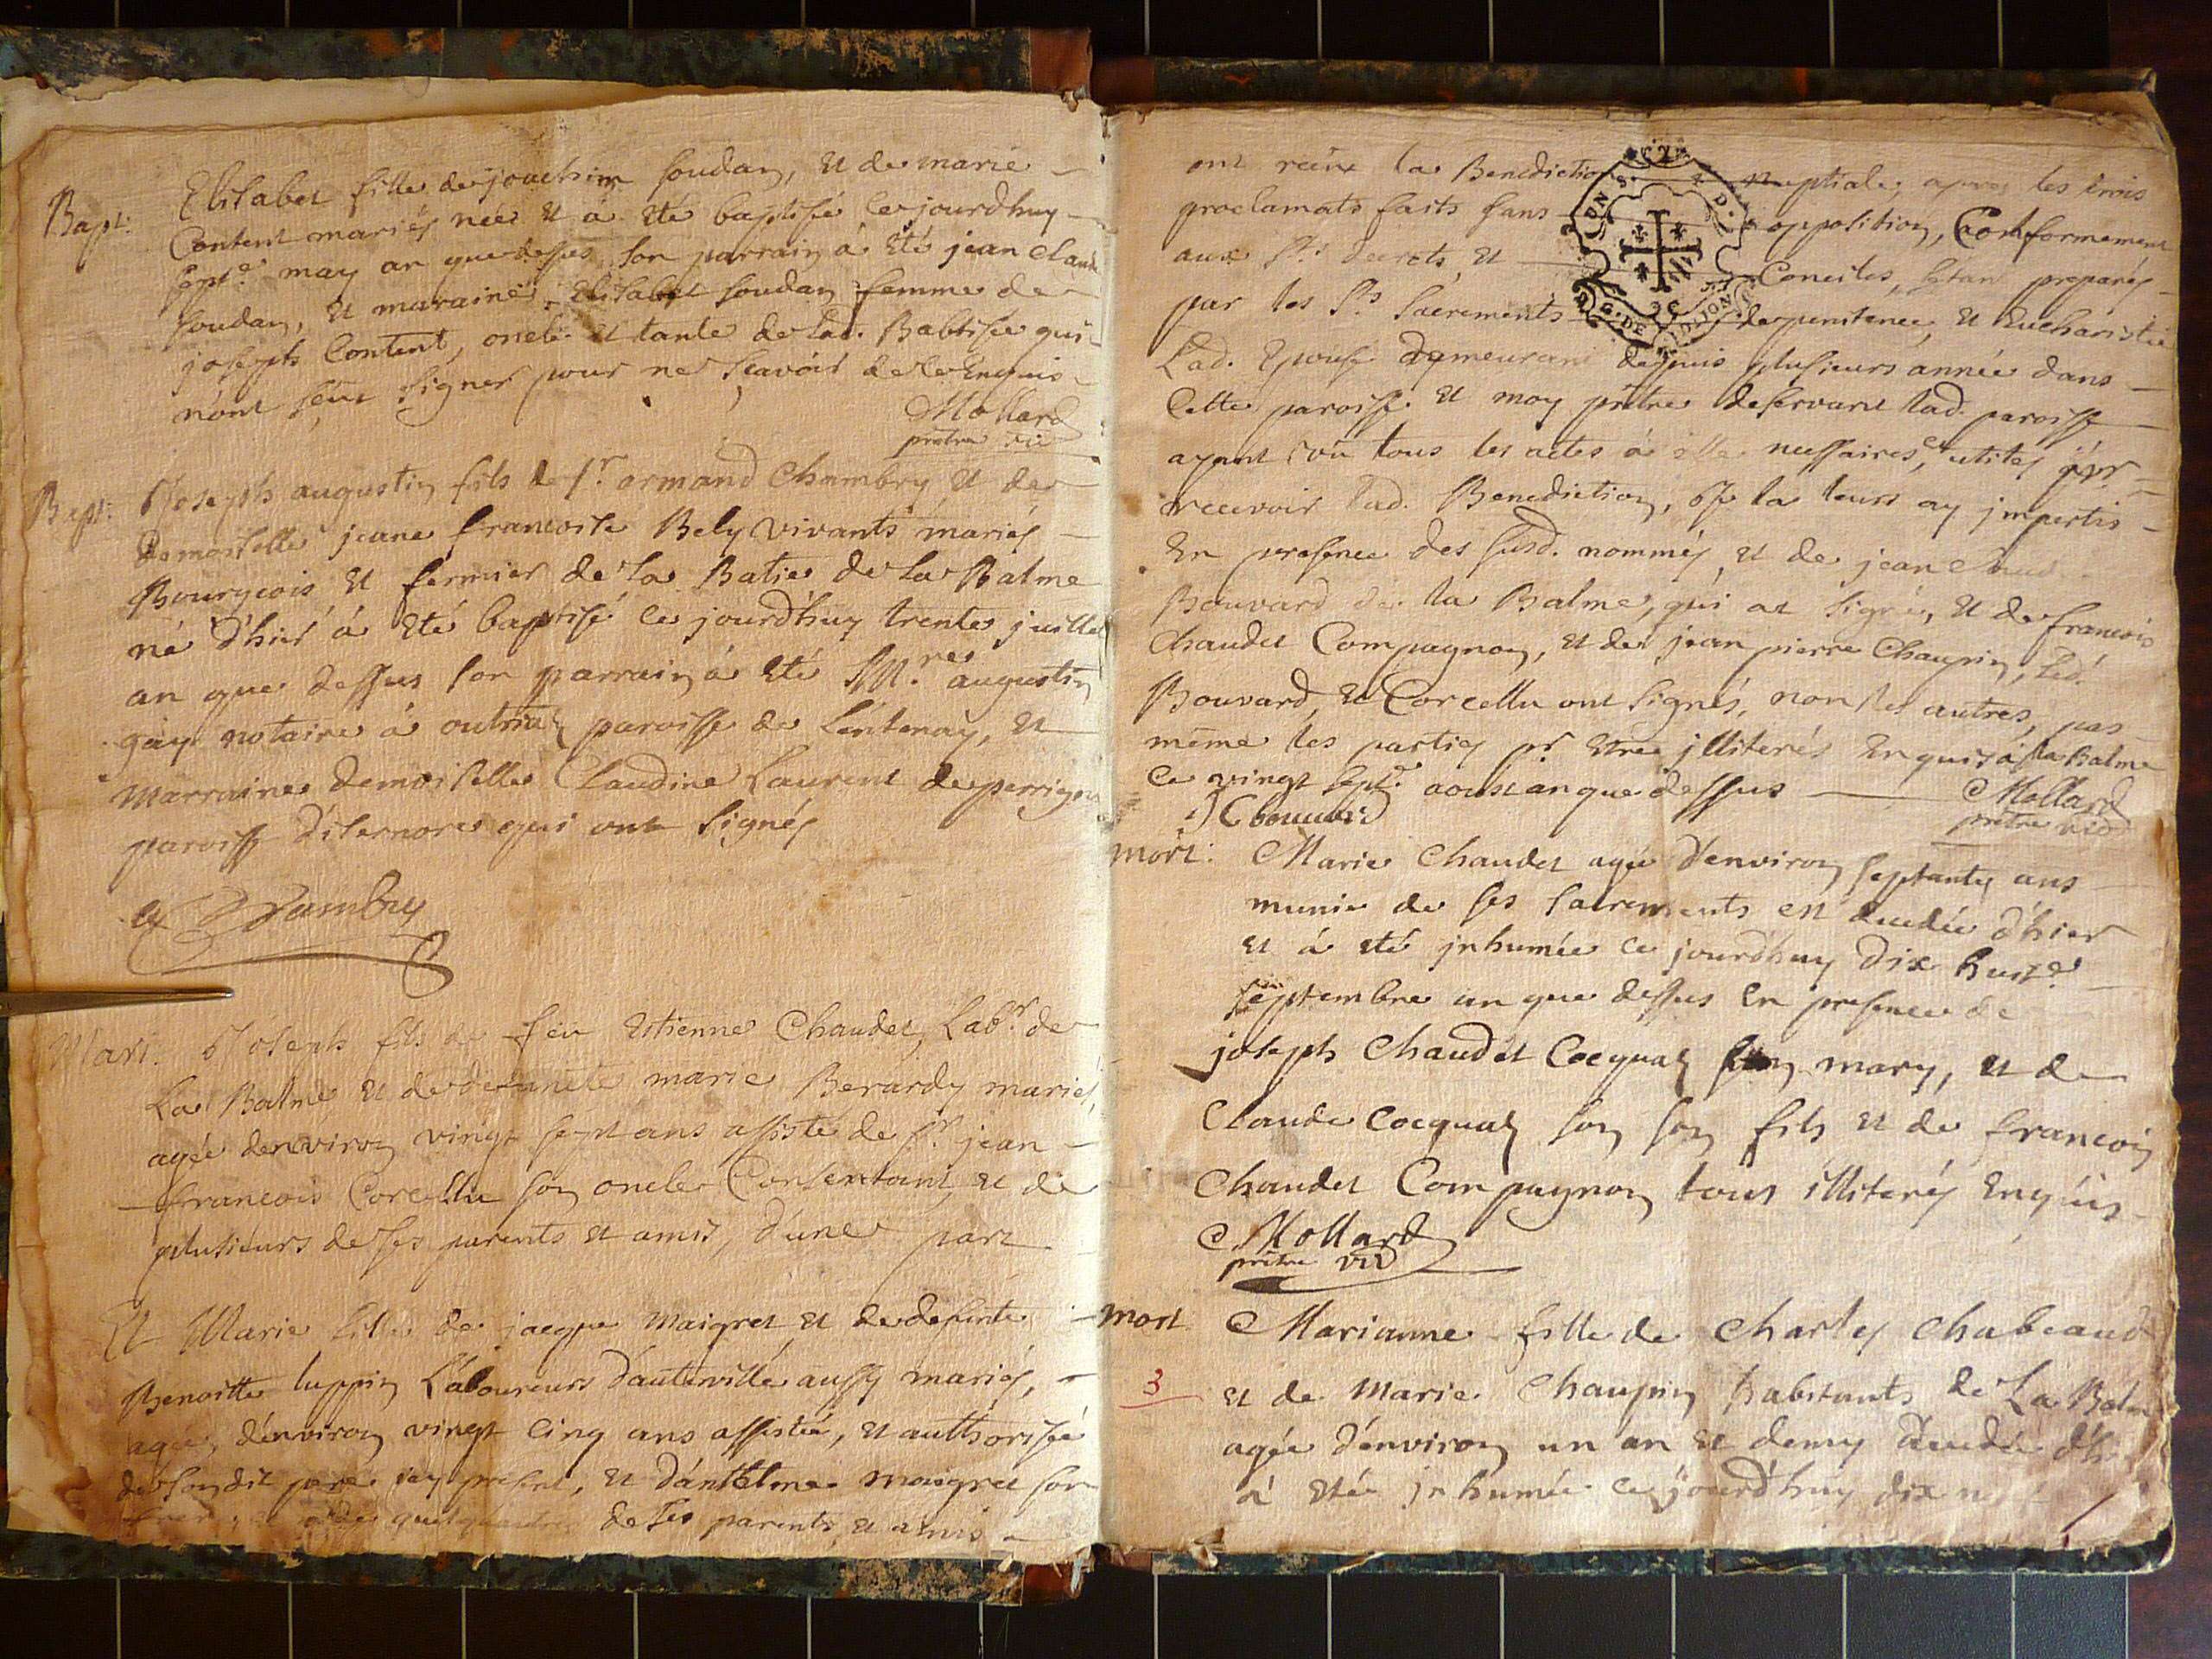 Bapt: Elisabet fille de joachim soudan, et de marie
Content mariés née et à eté baptisée ce jourdhuy
sept.e may an que dessus, son parrain à eté jean claude
soudan, et maraine Elisabet soudan femme de
joseph Content, oncle et tante de lad. Babtisée qui
n'ont sçeu signer pour ne sçavoir de ce Enquis
Mollard
prêtre vic
Bapt: Joseph augustin fils de sr. ormand Chambry et de
Demoiselle jeane francoise Bely vivants mariés
Bourgeois et fermier de la Batie de la Balme
né d'hier à eté baptisé ce jourd'huy trente juillet
an que dessus son parrain à eté augustin
gay notaire à outriaz paroisse de Lentenay, et
Marraine Demoiselle Claudine Laurent de perrignat
paroisse d'isernore qui ont signés
Chambry
Mari. Joseph fils de feu Estienne Chaudet, Lab.r de
La Balme et de defunte marie Berardy mariés,
agée denviron vingt sept ans assisté de sr. jean
francois Corcellu son oncle Consentant, et de
plusieurs de ses parents et amis, d'une part
Et Marie fille de jacque Maigret et de defunte
Benoitte luppin Laboureurs d'auteville aussy mariés,
agée, d'environ vingt cinq ans assistée, et authorisée
de son dit pere icy present, et d'antelme maigret son
frere, et de de ses parents, et amis
ont reçue la Benediction nuptiale, apres les trois
proclamats faits sans opposition, Conformement
aux Sts decrets, et Conciles, s'etant preparés
par les Sts Sacrements de penitence, et Eucharistie
Lad. Epouse demeurant depuis plusieurs année dans
Cette paroisse et moy prêtre deservant lad. paroisse
ayant vu tous les actes à nessaires, et utiles pr
recevoir lad. Benediction, Je la leurs ay jmpertis
En presence des susd. nommés, et de jean Claude
Bouvard de la Balme, qui at signé, et de francois
Chaudet Compagnon, et de jean pierre Chaupin, led.
Bouvard, et Corcellu ont signés, non les autres, pas
même les parties pr. Etre jlliterés Enquis à la Balme
ce vingt sept.e aoust an que dessus
Mollard
prêtre vic
JC bouvard
mort: Marie Chaudet agée d'environ septante ans
munie de ses sacrements est decedée d'hier
et à eté jnhumée ce jourd'huy dix huit.e
septembre an que dessus En presence de
joseph Chaudet Cocquaz son mary, et de
Claude Cocquaz son son fils et de francois
Chaudet Compagnon tous illiterés Enquis
Mollard
prêtre vic
mort Marianne fille de Charles Chabeaud
3
et de Marie Chaupin habitants de La Balme
agée d'environ un an et demy decedée d'hier
à etée jnhumée ce jourd'huy dix
G. DE DIJON